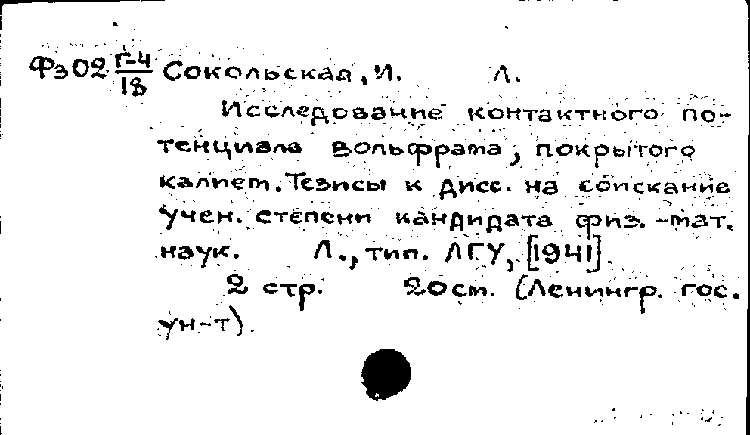 Фз02 Г-4/18 Сокольская, И. Л.
Исследование контактного по-
тенциала вольфрама, покрытого
калием. Тезисы к дисс. на соискание
учен. степени кандидата физ.-мат.
наук. Л., тип. ЛГУ, [1941].
2 стр. 20 см. (Ленингр. гос.
ун-т).